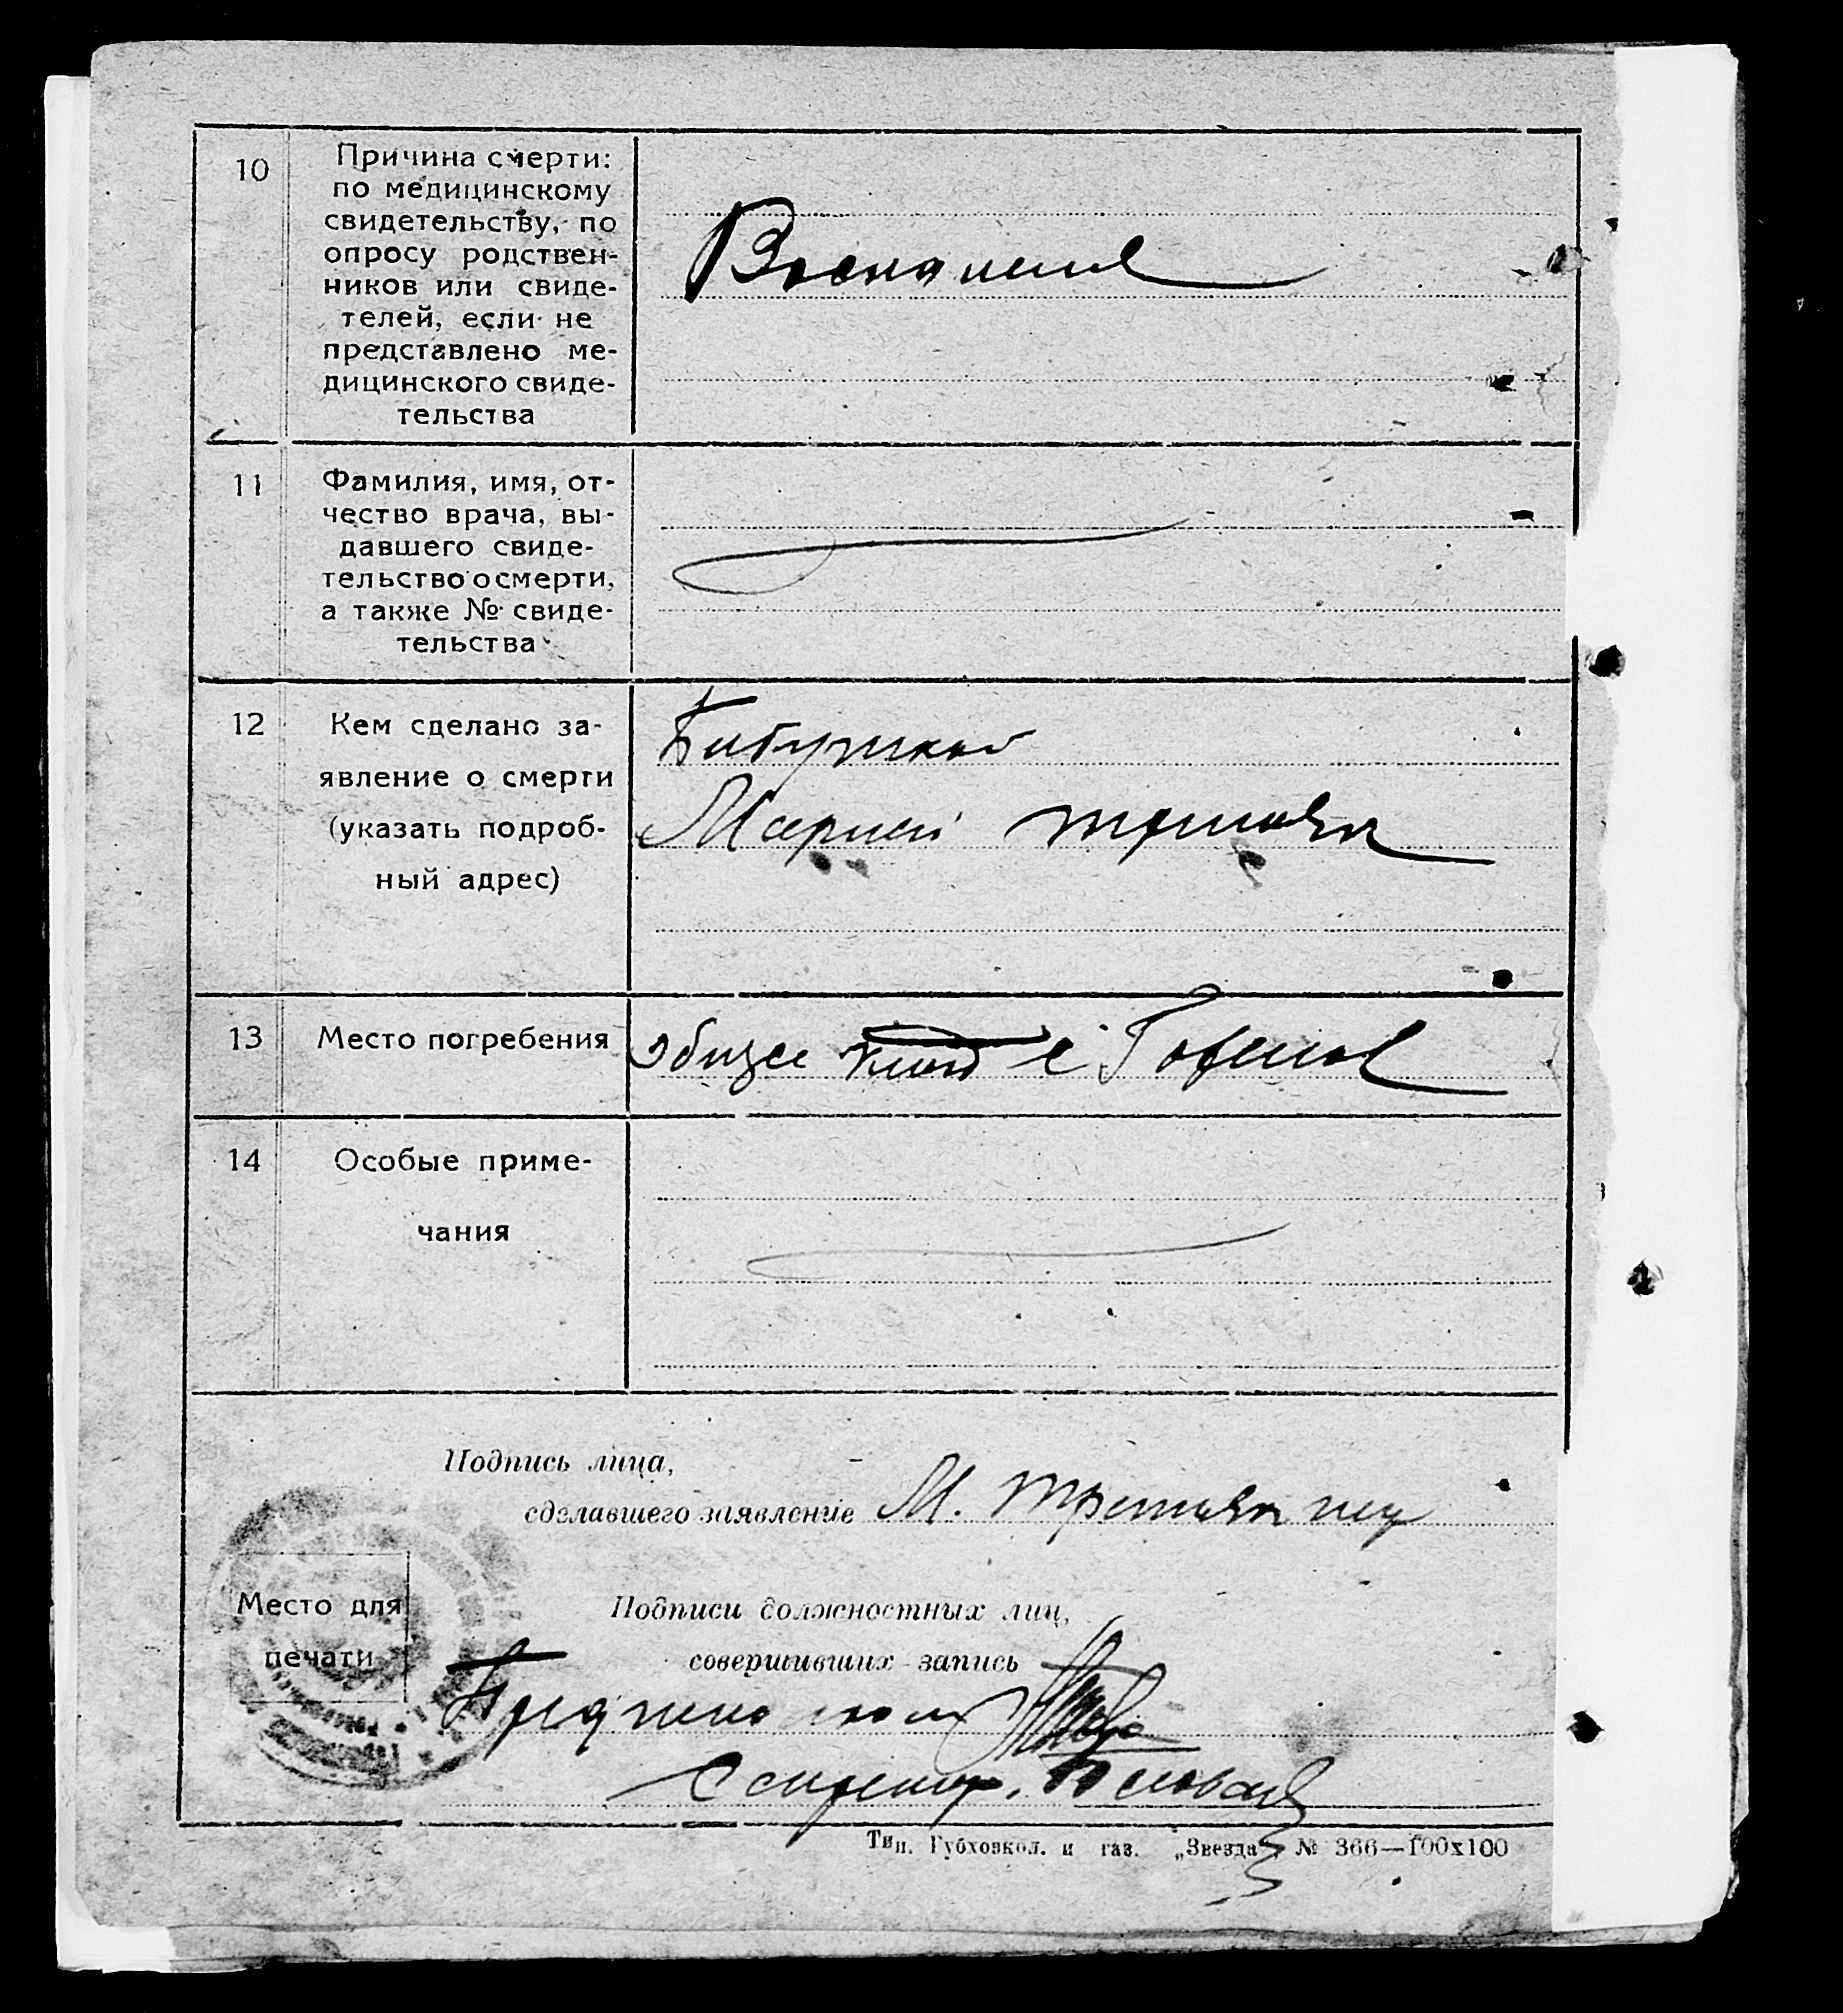 10
Причина смерти:
по медицинскому
свидетельству, по
опросу родствен-
ников или свиде-
телей, если не
представлено ме-
дицинского свиде-
тельства
11
Фамилия, имя, от-
чество врача, вы-
давшего свиде-
тельство о смерти,
а также № свиде-
тельства
12
Кем сделано за-
явление о смерти
(указать подроб-
ный адрес)
Бабушкой
Марией
13
Место погребения
общее
14
Особые приме-
чания
Подпись лица,
сделавшего заявление М.
Место для
печати
Подписи должностных лиц,
совершивших запись
Секретар.
Тип. Губховкол. и газ. „Звезда“, № 366—100х100